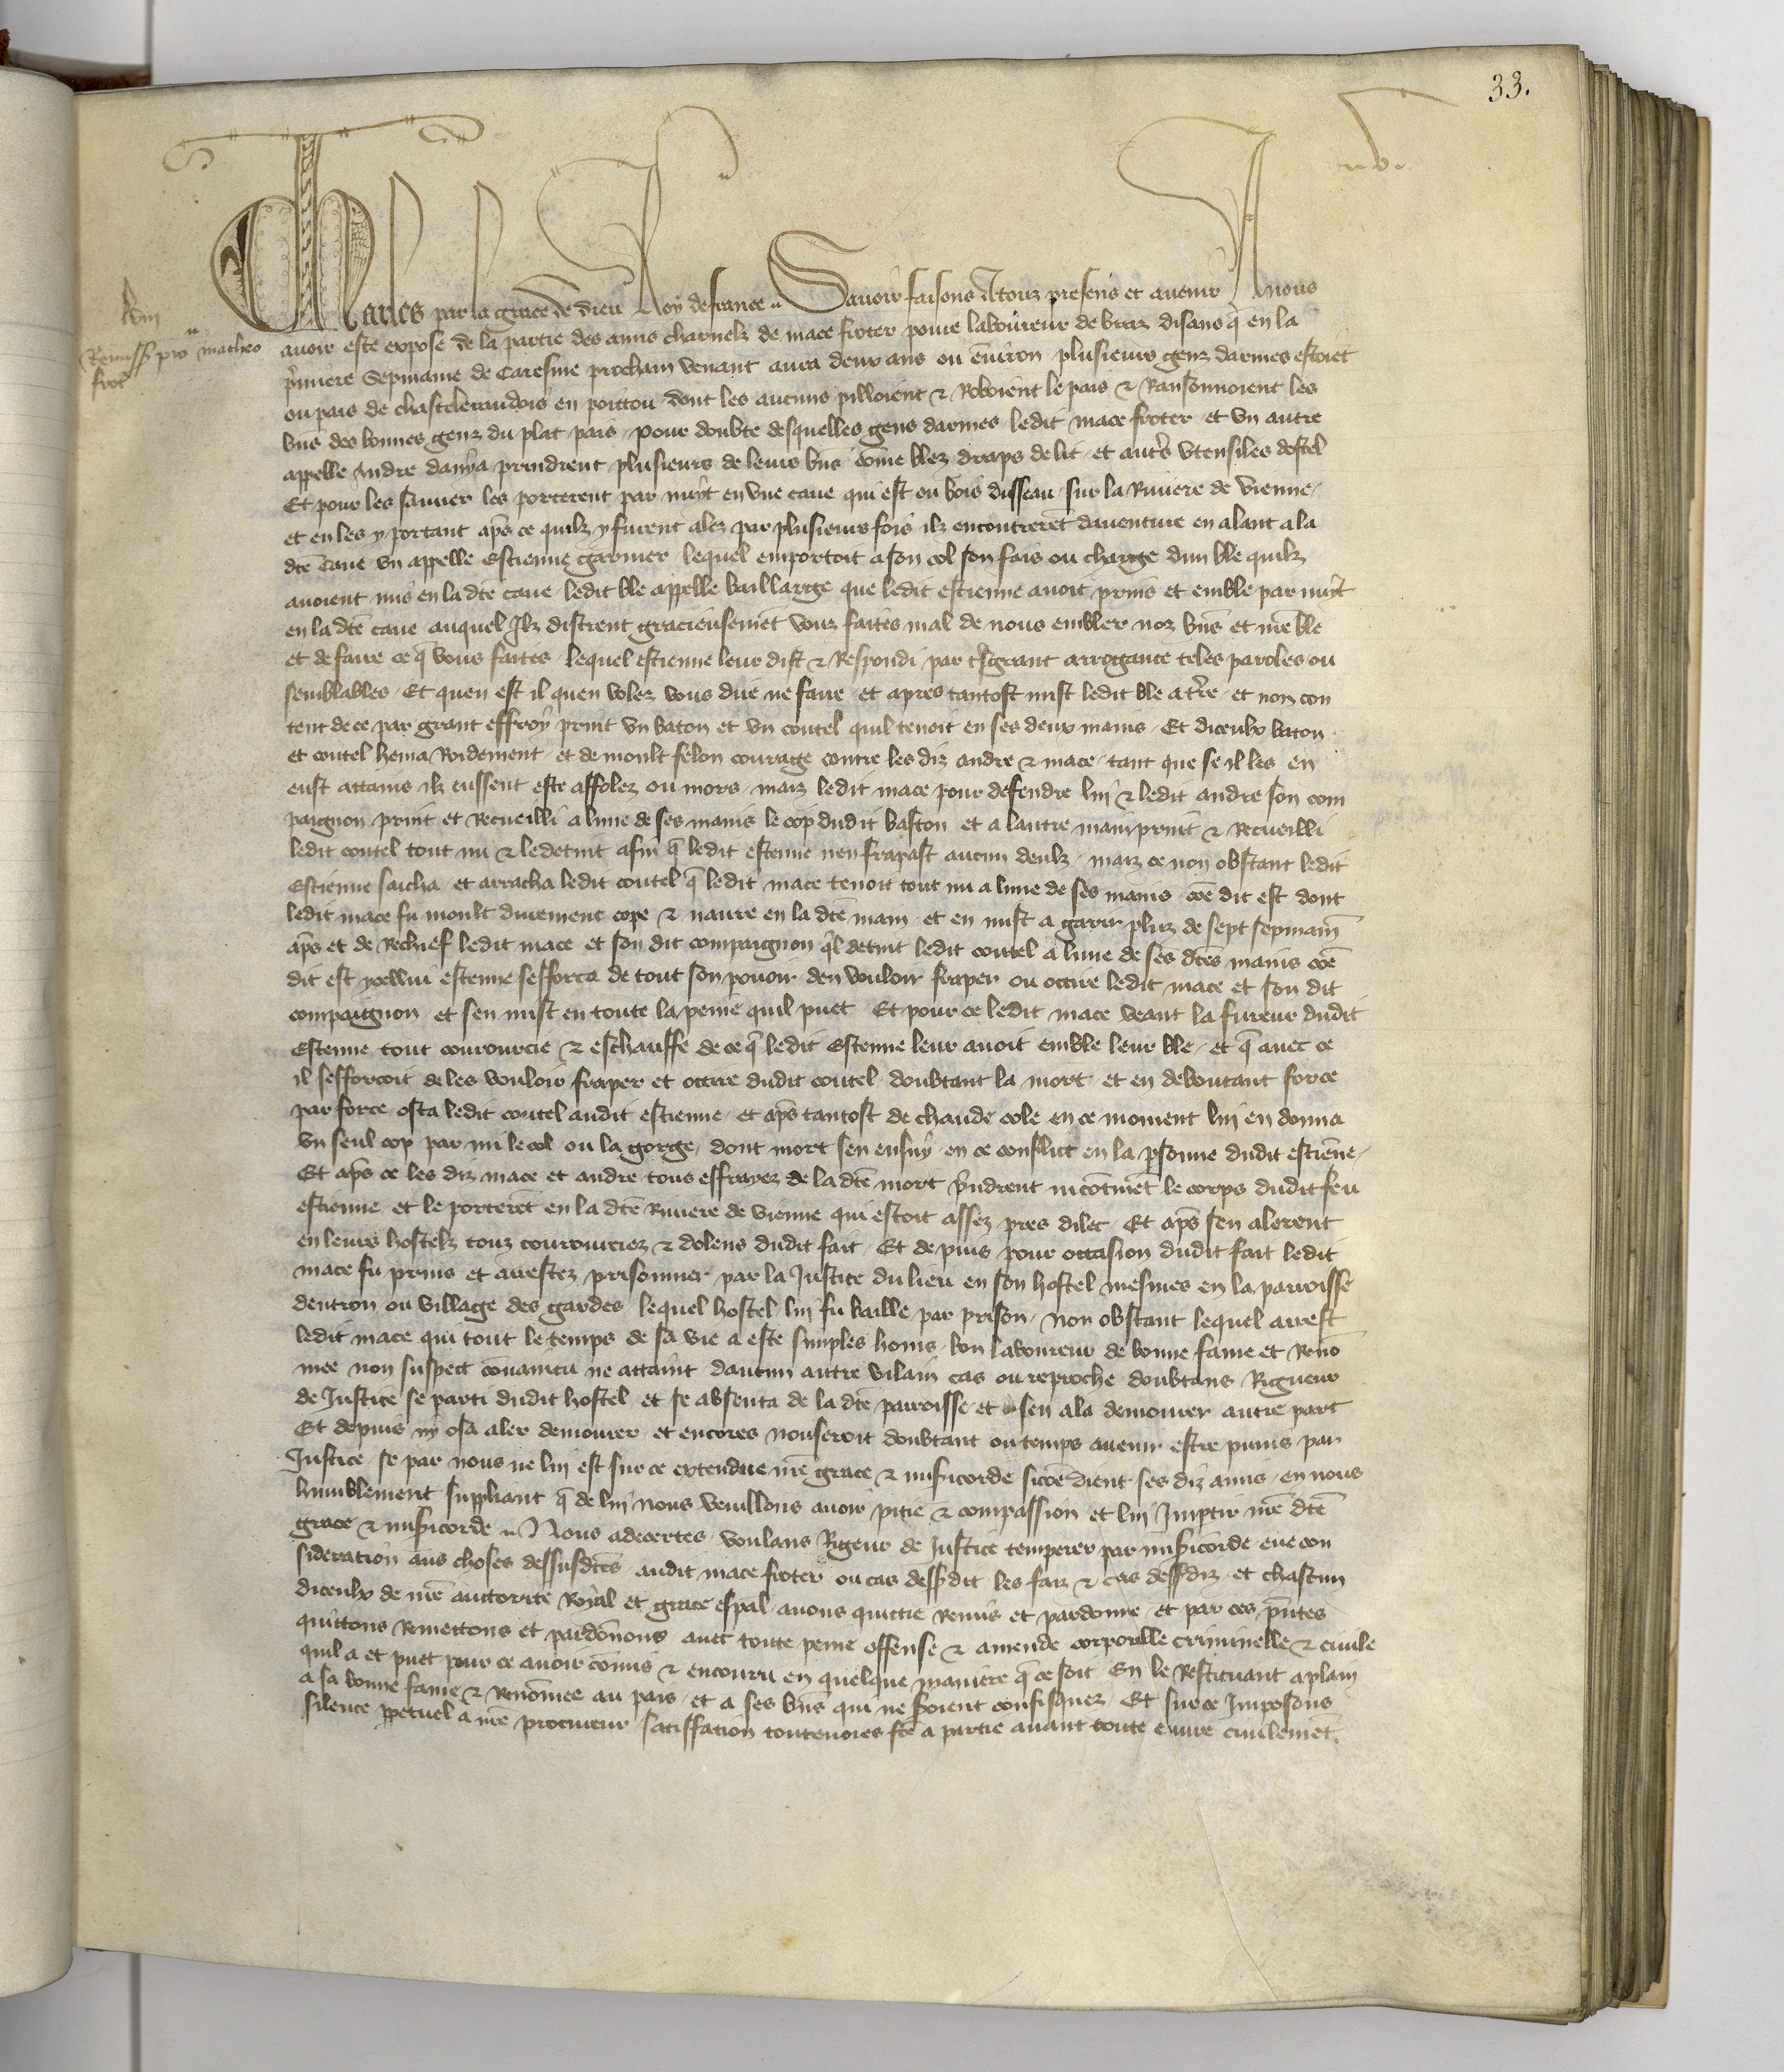 33.
Charles par la grace de dieu Roy de france Sauoir faisons A touz presens et auenir A nous
Remiss pro matheo
frot
auoir este expose de la partie des amis charnelz de mace froter poure laboureur de braz disans q̄ en la
p̃miere Sepmaine de Caresme prochain venant aura deux ans ou enuiron plusieurs genz darmes estoiēt
ou pais de chastelleraudois en poictou dont les aucuns pilloient & Roboient le pais & Ransonnoient les
biēs des bonnes genz du plat pais pour doubte desquelles gens darmes ledit mace froter et vn autre
appelle Andre prindrent plusieurs de leurs biēs cōme blez draps de lit et autr̃s vtensiles dostel
Et pour les sauuer les porterent par nuyt en vne caue qui est ou bois disseau sur la Riuiere de vienne
et en les y portant ap̃s ce quilz y furent alez par plusieurs fois ilz encontrerēt dauenture en alant a la
dc̄e caue vn appelle Estienne garnier lequel emportoit a son col son fais ou charge dun ble quilz
auoient mis en la dc̄e caue ledit ble appelle baillarge que ledit estienne auoit prins et emble par nuyt
en la dc̄e caue auquel Ilz distrent gracieusemēt vouz faites mal de nous embler noz biēs et nr̄e ble
et de faire ce q̄ vous faites lequel estienne leur dist & Respondi par t̃sgrant arrogance teles paroles ou
semblables Et quen est il quen volez vous dire ne faire et apres tantost mist ledit ble a t̃re et non con
tent de ce par grant effroy print vn baton et vn coutel quil tenoit en ses deux mains Et diceulx baton
et coutel Roidement et de moult felon courage contre les diz andre & mace tant que se il les en
eust attains ilz eussent este affolez ou mors maiz ledit mace pour defendre lui & ledit andre son com
paignon print et Recueilli a lune de ses mains le cop dudit baston et a lautre main print & Recueilli
ledit coutel tout nu & le detint afin q̄ ledit estienne nen frapast aucun deulx maiz ce non obstant ledit
Estienne saicha et arracha ledit coutel q̄ ledit mace tenoit tout nu a lune de ses mains cōe dit est dont
ledit mace fu moult durement cope & naure en la dc̄e main et en mist a garir pluz de sept sepmain̄
ap̃s et de Rechief ledit mace et son dit compaignon q̃l detint ledit coutel a lune de ses dc̄es mains cōe
dit est ycellui estienne sefforca de tout son pouoir den vouloir fraper ou occire ledit mace et son dit
compaignon et sen mist en toute la peine quil puet Et pour ce ledit mace veant la fureur dudit
Estienne tout courourcie & eschauffe de ce q̄ ledit Estienne leur auoit emble leur ble et q̄ auec ce
il sefforcoit de les vouloir fraper et occire dudit coutel doubtant la mort et en deboutant force
par force osta ledit coutel audit estienne et ap̃s tantost de chaude cole en ce moment lui en donna
vn seul cop par mi le col ou la gorge dont mort sen ensuy en ce conflict en la p̱sonne dudit estiēne
Et ap̃s ce les diz mace et andre tous effrayez de la dc̄e mort p̃ndrent incōtinēt le corps dudit feu
estienne et le porterēt en la dc̄e Riuiere de vienne qui estoit assez pres dilec Et ap̃s sen alerent
en leurs hostelz touz courourciez & dolens dudit fait Et depuis pour occasion dudit fait ledit
mace fu prins et arrestez prisonnier par la Justice du lieu en son hostel mesmes en la parroisse
dentron ou village des gardes lequel hostel lui fu baille par prison Non obstant lequel arrest
ledit mace qui tout le temps de sa vie a este simples homs bon laboureur de bonne fame et Renō
mee non suspect cōuaincu ne attaint daucun autre vilain cas ou reproche doubtans Rigueur
de Justice se parti dudit hostel et se absenta de la dc̄e parroisse et sen ala demourer autre part
Et depuis ny osa aler demourer et encores nouseroit doubtant ou temps auenir estre punis par
Justice se par nous ne lui est sur ce extendue nr̄e grace & mis̃icorde sicōe dient ses diz amis en nous
humblement suppliant q̄ de lui nous veuillons auoir pitie & compassion et lui Imp̱tir nr̄e dc̄e
grace & mis̃icorde Nous adecertes voulans Rigeur de Justice temperer par mis̃icorde eue con
sideration aus choses dessusdc̄es audit mace froter ou cas dess̃dit les faiz & cas dess̃diz et chascun
diceulx de nr̄e auctorite Royal et grace esp̄al auons quictie Remis et pardonne et par ces p̃ntes
quittons Remettons et pardōnons auec toute peine offense & amende corporelle criminelle & ciuile
quil a et puet pour ce auoir cōmis & encouru en quelque maniere q̄ ce soit En le Restituant a plain
a sa bonne fame & Renōmee au pais et a ses biēs qui ne s̃oient confisquez Et sur ce Imposons
silence p̱petuel a nr̄e procureur satiffation toutenoies fc̄e a partie auant toute euure ciuilemēt